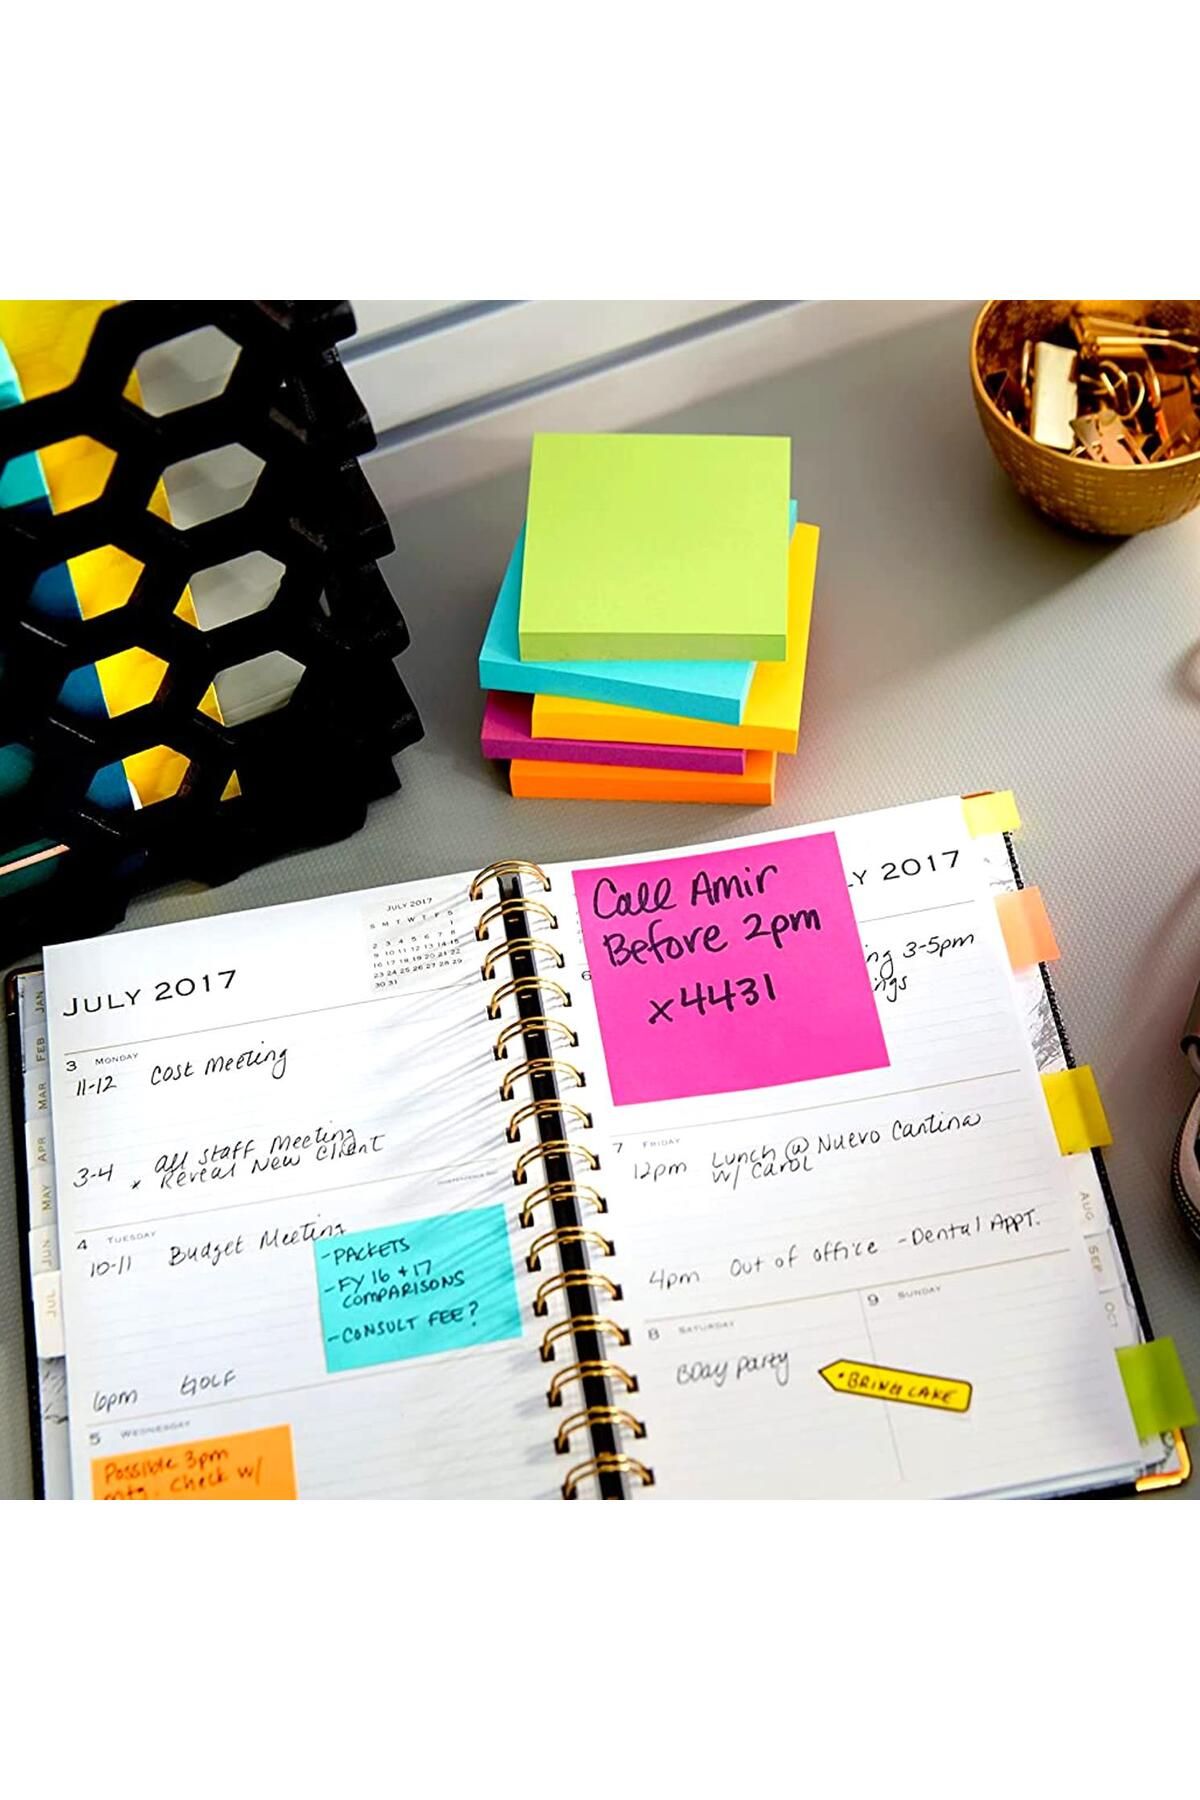 JULY 2017
JULY 2017
S M T W T F S
1
2 3 4 5 6 7 8
9 10 11 12 13 14 15
16 17 18 19 20 21 22
23 24 25 26 27 28 29
30 31
3 MONDAY
11-12 Cost Meeting
3-4 * All Staff Meeting
Reveal New Client
INDEPENDENCE DAY
4 TUESDAY
10-11 Budget Meeting
-PACKETS
-FY 16 + 17
COMPARISONS
-CONSULT FEE?
6pm GOLF
5 WEDNESDAY
Possible 3pm
mtg. Check w/
JAN
FEB
MAR
APR
MAY
JUN
JUL
Call Amir
Before 2pm
x4431
LY 2017
6
ng 3-5pm
ngs
7 FRIDAY
12pm Lunch @ Nuevo Cantina
w/ Carol
4pm Out of office -Dental Appt.
8 SATURDAY
BDay party
9 SUNDAY
•BRING CAKE
AUG
SEP
OCT